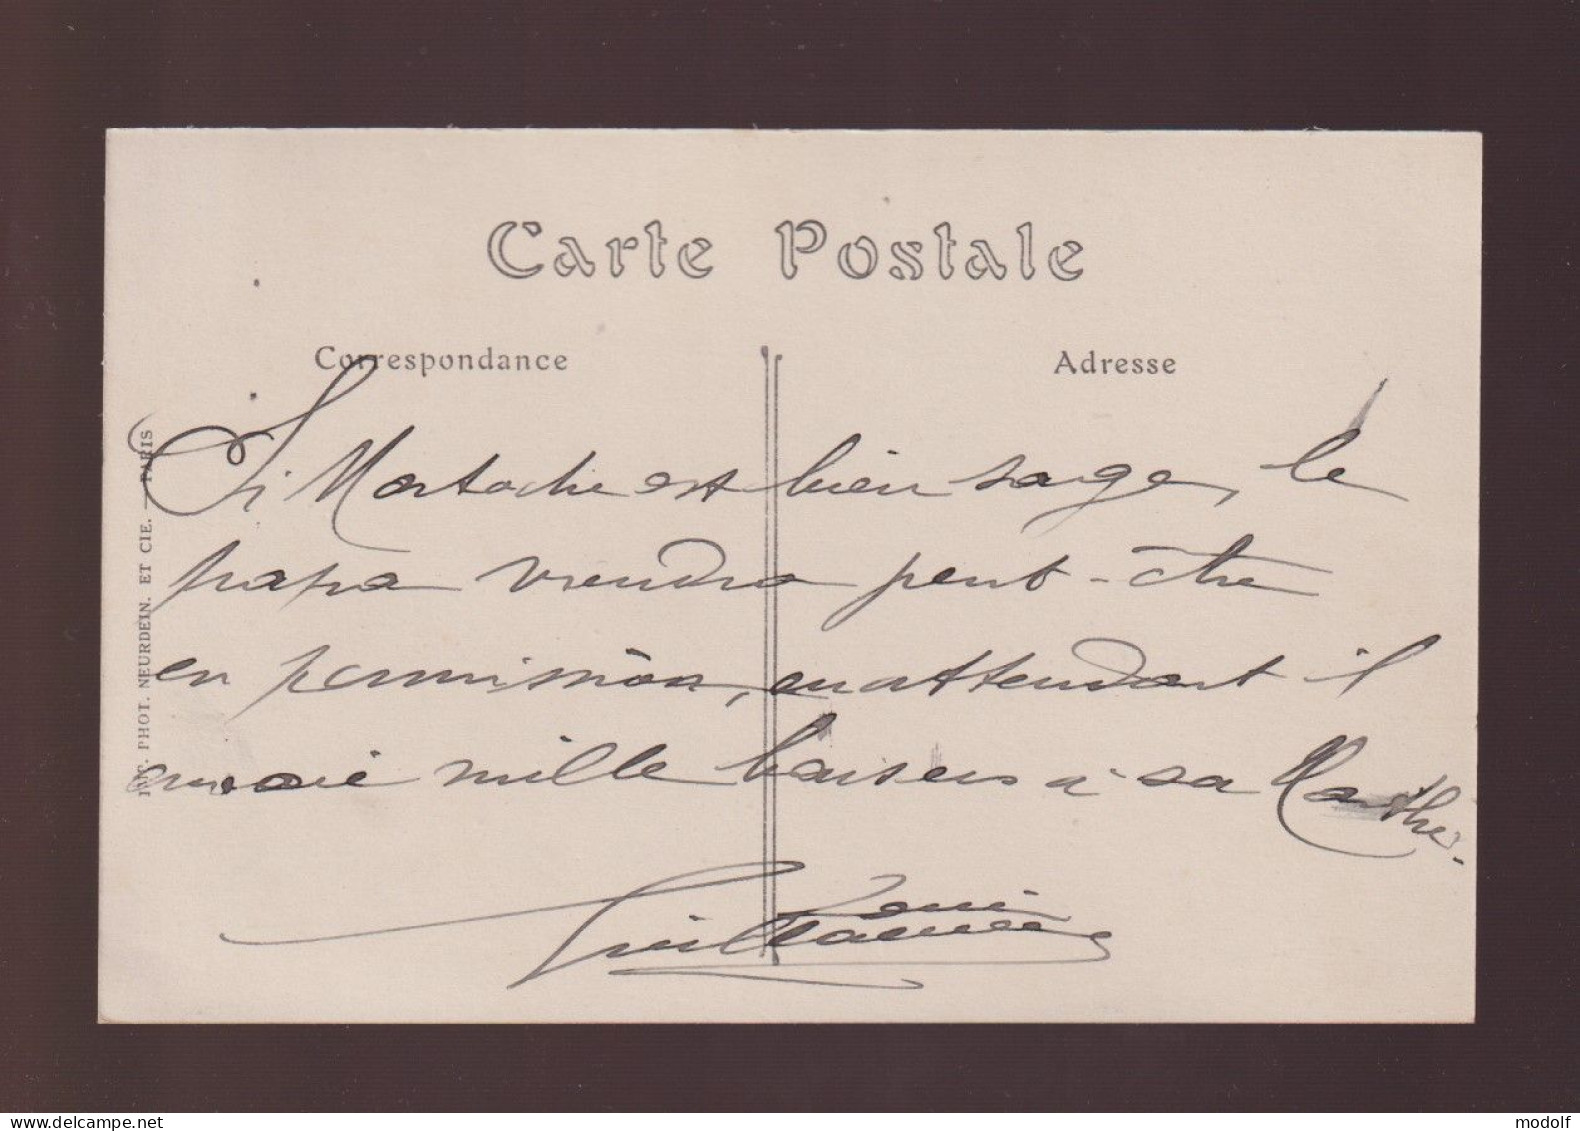 Carte Postale
Correspondance
Adresse
Si est bien sage, le
papa viendra peut-être
en permission, en attendant il
envoie mille baisers à sa Marthe.
Louis
Guillaume
IMP. PHOT. NEURDEIN. ET CIE. — PARIS
www.delcampe.net
modolf